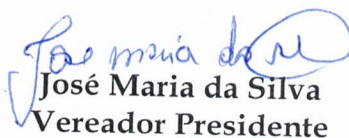 José Maria da Silva
José Maria da Silva
Vereador Presidente